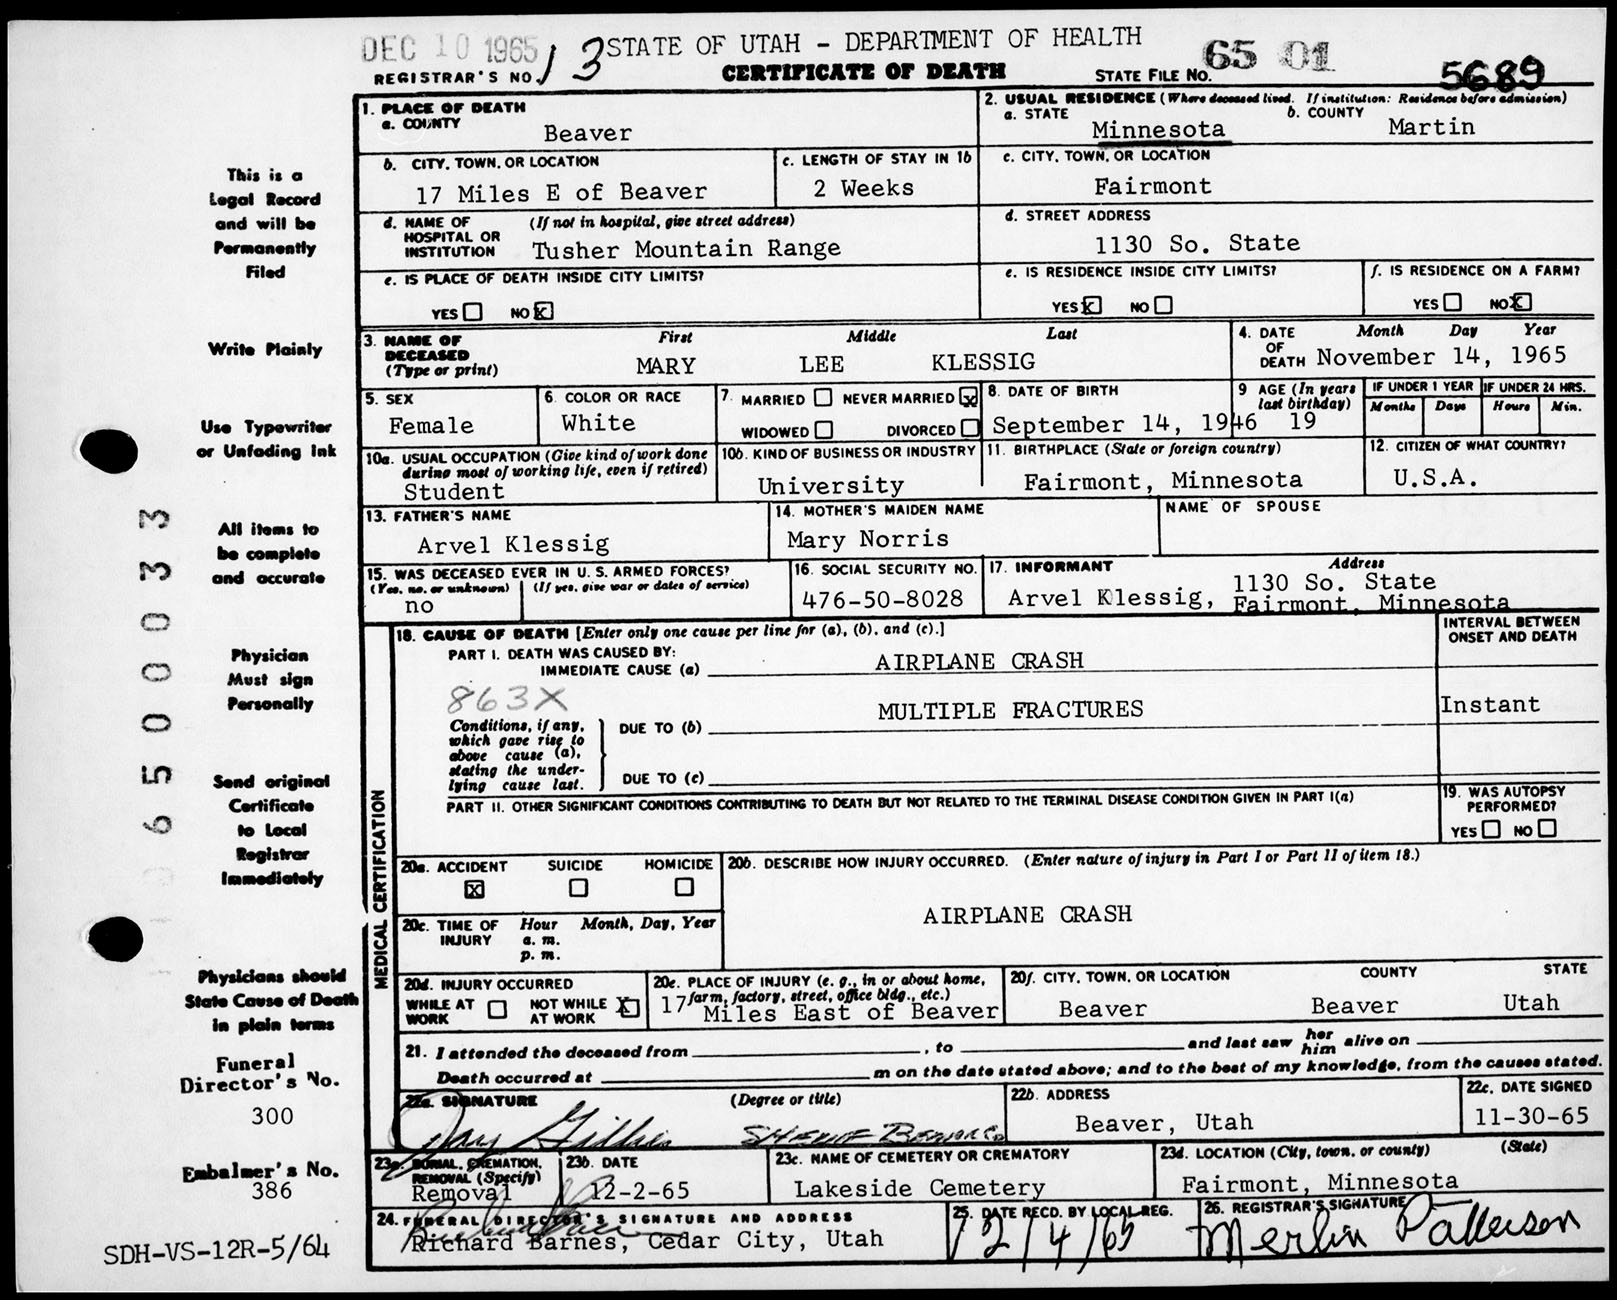 DEC 10 1965
STATE OF UTAH - DEPARTMENT OF HEALTH
65 01
5689
REGISTRAR'S NO. 13
CERTIFICATE OF DEATH
STATE FILE NO.
1. PLACE OF DEATH
a. COUNTY
Beaver
2. USUAL RESIDENCE (Where deceased lived. If institution: Residence before admission)
a. STATE
Minnesota
b. COUNTY
Martin
b. CITY, TOWN, OR LOCATION
17 Miles E of Beaver
c. LENGTH OF STAY IN 1b
2 Weeks
c. CITY, TOWN, OR LOCATION
Fairmont
d. NAME OF HOSPITAL OR INSTITUTION
(If not in hospital, give street address)
Tusher Mountain Range
d. STREET ADDRESS
1130 So. State
e. IS PLACE OF DEATH INSIDE CITY LIMITS?
YES NO X
e. IS RESIDENCE INSIDE CITY LIMITS?
YES X NO
f. IS RESIDENCE ON A FARM?
YES NO X
3. NAME OF DECEASED (Type or print)
First Middle Last
MARY LEE KLESSIG
4. DATE OF DEATH
Month Day Year
November 14, 1965
5. SEX
Female
6. COLOR OR RACE
White
7. MARRIED NEVER MARRIED X
WIDOWED DIVORCED
8. DATE OF BIRTH
September 14, 1946
9 AGE (In years last birthday)
19
IF UNDER 1 YEAR
Months Days
IF UNDER 24 HRS.
Hours Min.
10a. USUAL OCCUPATION (Give kind of work done during most of working life, even if retired)
Student
10b. KIND OF BUSINESS OR INDUSTRY
University
11. BIRTHPLACE (State or foreign country)
Fairmont, Minnesota
12. CITIZEN OF WHAT COUNTRY?
U.S.A.
13. FATHER'S NAME
Arvel Klessig
14. MOTHER'S MAIDEN NAME
Mary Norris
NAME OF SPOUSE
15. WAS DECEASED EVER IN U. S. ARMED FORCES?
(Yes, no, or unknown) (If yes, give war or dates of service)
no
16. SOCIAL SECURITY NO.
476-50-8028
17. INFORMANT Address
Arvel Klessig, 1130 So. State
Fairmont, Minnesota
18. CAUSE OF DEATH [Enter only one cause per line for (a), (b), and (c).]
INTERVAL BETWEEN ONSET AND DEATH
PART I. DEATH WAS CAUSED BY:
IMMEDIATE CAUSE (a) AIRPLANE CRASH
863X
Conditions, if any, which gave rise to above cause (a), stating the underlying cause last.
DUE TO (b) MULTIPLE FRACTURES
Instant
DUE TO (c)
PART II. OTHER SIGNIFICANT CONDITIONS CONTRIBUTING TO DEATH BUT NOT RELATED TO THE TERMINAL DISEASE CONDITION GIVEN IN PART I(a)
19. WAS AUTOPSY PERFORMED?
YES NO
MEDICAL CERTIFICATION
20a. ACCIDENT SUICIDE HOMICIDE
X
20b. DESCRIBE HOW INJURY OCCURRED. (Enter nature of injury in Part I or Part II of item 18.)
AIRPLANE CRASH
20c. TIME OF INJURY
Hour Month, Day, Year
a. m.
p. m.
20d. INJURY OCCURRED
WHILE AT WORK NOT WHILE AT WORK X
20e. PLACE OF INJURY (e. g., in or about home, farm, factory, street, office bldg., etc.)
17 Miles East of Beaver
20f. CITY, TOWN, OR LOCATION COUNTY STATE
Beaver Beaver Utah
21. I attended the deceased from , to and last saw her him alive on
Death occurred at m on the date stated above; and to the best of my knowledge, from the causes stated.
22a. SIGNATURE (Degree or title)
Jay Gillies
22b. ADDRESS
Beaver, Utah
22c. DATE SIGNED
11-30-65
23a. BURIAL, CREMATION, REMOVAL (Specify)
Removal
23b. DATE
12-2-65
23c. NAME OF CEMETERY OR CREMATORY
Lakeside Cemetery
23d. LOCATION (City, town, or county) (State)
Fairmont, Minnesota
24. FUNERAL DIRECTOR'S SIGNATURE AND ADDRESS
Richard Barnes, Cedar City, Utah
25. DATE RECD. BY LOCAL REG.
12/4/65
26. REGISTRAR'S SIGNATURE
Merlin Patterson
This is a
Legal Record
and will be
Permanently
Filed
Write Plainly
Use Typewriter
or Unfading Ink
All items to
be complete
and accurate
Physician
Must sign
Personally
Send original
Certificate
to Local
Registrar
Immediately
Physicians should
State Cause of Death
in plain terms
Funeral
Director's No.
300
Embalmer's No.
386
SDH-VS-12R-5/64
6500033